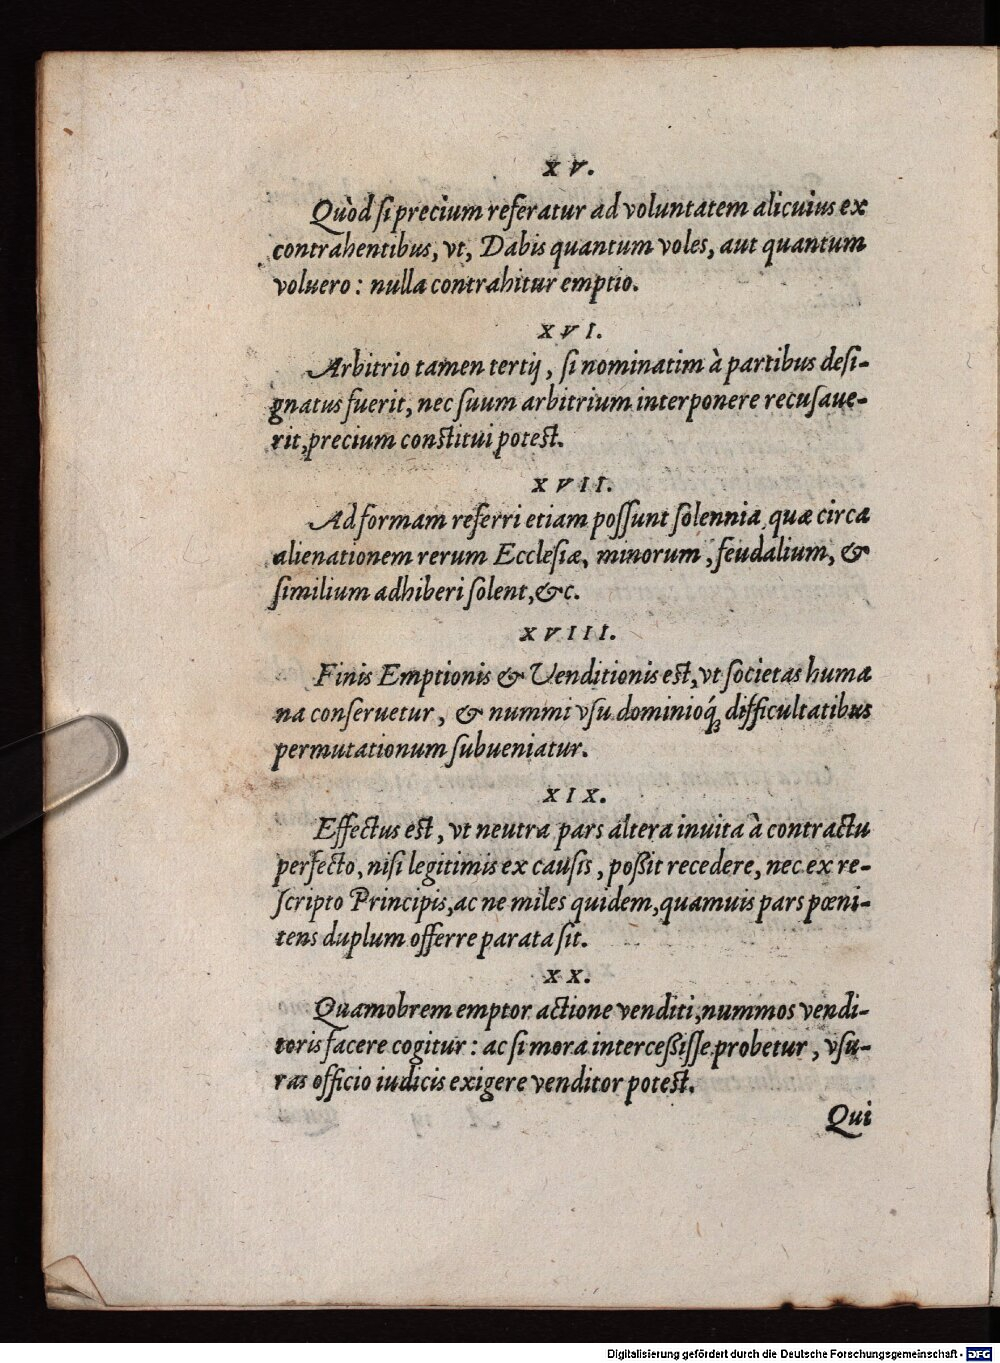 XV.
Quòd si precium referatur ad voluntatem alicuius ex
contrahentibus, vt, Dabis quantum voles, aut quantum
voluero: nulla contrahitur emptio.
XVI.
Arbitrio tamen tertij, si nominatim à partibus desi-
gnatus fuerit, nec suum arbitrium interponere recusaue-
rit, precium constitui potest.
XVII.
Ad formam referri etiam possunt solennia, quæ circa
alienationem rerum Ecclesiæ, minorum, feudalium, &
similium adhiberi solent, &c.
XVIII.
Finis Emptionis & Venditionis est, vt societas huma
na conseruetur, & nummi vsu dominioq́ꝫ difficultatibus
permutationum subueniatur.
XIX.
Effectus est, vt neutra pars altera inuita à contractu
perfecto, nisi legitimis ex causis, poßit recedere, nec ex re-
scripto Principis, ac ne miles quidem, quamuis pars pœni-
tens duplum offerre parata sit.
XX.
Quamobrem emptor actione venditi, nummos vendi-
toris facere cogitur: ac si mora interceßisse probetur, vsu-
ras officio iudicis exigere venditor potest.
Qui
Digitalisierung gefördert durch die Deutsche Forschungsgemeinschaft - DFG